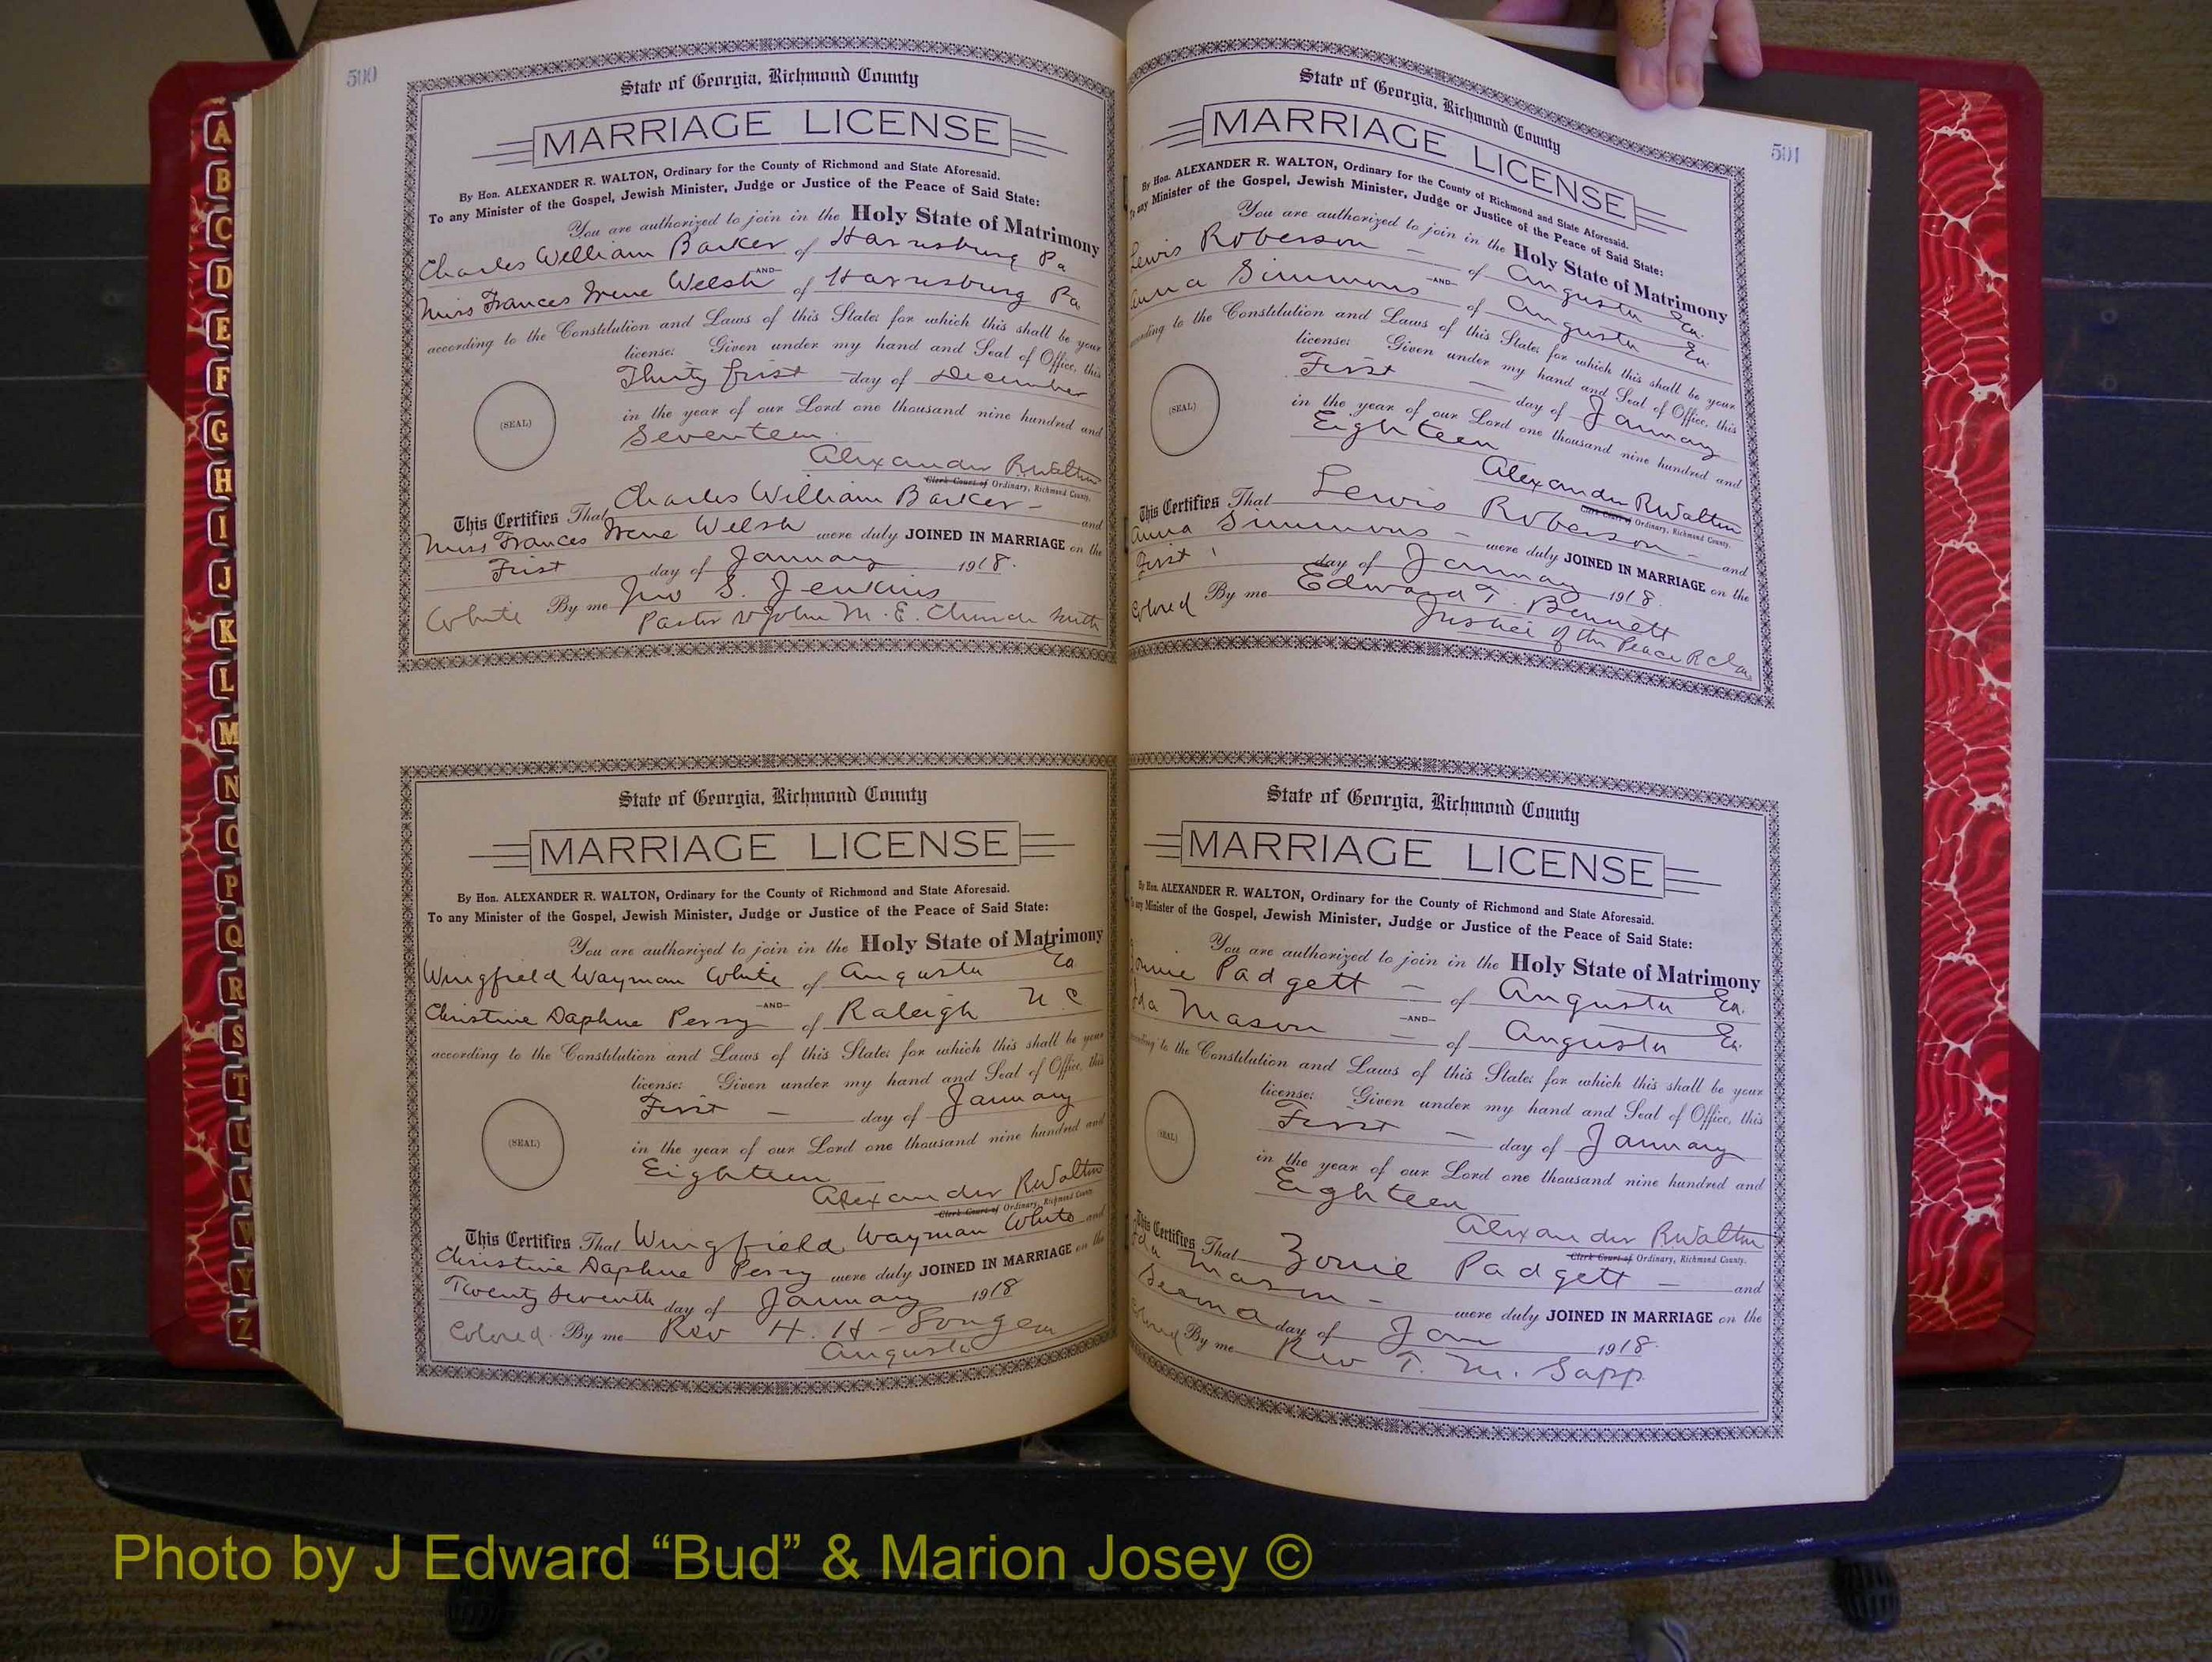 A
B
C
D
E
F
G
H
I
J
K
L
M
N
O
P
Q
R
S
T
U
V
W
Y
Z
500
State of Georgia, Richmond County
MARRIAGE LICENSE
By Hon. ALEXANDER R. WALTON, Ordinary for the County of Richmond and State Aforesaid.
To any Minister of the Gospel, Jewish Minister, Judge or Justice of the Peace of Said State:
You are authorized to join in the Holy State of Matrimony
Charles William Barker of Harrisburg Pa
—AND—
Miss Frances Irene Welsh of Harrisburg Pa
according to the Constitution and Laws of this State; for which this shall be your
license: Given under my hand and Seal of Office, this
Thirty first day of December
(SEAL)
in the year of our Lord one thousand nine hundred and
Seventeen
Alexander R Walton
Clerk Court of Ordinary, Richmond County.
This Certifies That Charles William Barker and
Miss Frances Irene Welsh were duly JOINED IN MARRIAGE on the
First day of January 1918.
White By me Jno S. Jenkins
Pastor St John M. E. Church South
State of Georgia, Richmond County
MARRIAGE LICENSE
By Hon. ALEXANDER R. WALTON, Ordinary for the County of Richmond and State Aforesaid.
To any Minister of the Gospel, Jewish Minister, Judge or Justice of the Peace of Said State:
You are authorized to join in the Holy State of Matrimony
Wingfield Wayman White of Augusta Ga
—AND—
Christine Daphne Perry of Raleigh N C
according to the Constitution and Laws of this State; for which this shall be your
license: Given under my hand and Seal of Office, this
First — day of January
(SEAL)
in the year of our Lord one thousand nine hundred and
Eighteen
Alexander R Walton
Clerk Court of Ordinary, Richmond County
This Certifies That Wingfield Wayman White and
Christine Daphne Perry were duly JOINED IN MARRIAGE on the
Twenty Seventh day of January 1918
Colored By me Rev H. H.
Augusta
501
State of Georgia, Richmond County
MARRIAGE LICENSE
By Hon. ALEXANDER R. WALTON, Ordinary for the County of Richmond and State Aforesaid.
To any Minister of the Gospel, Jewish Minister, Judge or Justice of the Peace of Said State:
You are authorized to join in the Holy State of Matrimony
Lewis Roberson — of Augusta Ga.
—AND—
Anna Simmons of Augusta Ga.
according to the Constitution and Laws of this State; for which this shall be your
license: Given under my hand and Seal of Office, this
First — day of January
(SEAL)
in the year of our Lord one thousand nine hundred and
Eighteen
Alexander R Walton
Clerk Court of Ordinary, Richmond County.
This Certifies That Lewis Roberson — and
Anna Simmons — were duly JOINED IN MARRIAGE on the
First day of January 1918.
Colored By me Edward T. Bennett
Justice of the Peace R C Ga,
State of Georgia, Richmond County
MARRIAGE LICENSE
By Hon. ALEXANDER R. WALTON, Ordinary for the County of Richmond and State Aforesaid.
To any Minister of the Gospel, Jewish Minister, Judge or Justice of the Peace of Said State:
You are authorized to join in the Holy State of Matrimony
Padgett — of Augusta Ga.
—AND—
Ida Mason — of Augusta Ga.
according to the Constitution and Laws of this State; for which this shall be your
license: Given under my hand and Seal of Office, this
First — day of January
(SEAL)
in the year of our Lord one thousand nine hundred and
Eighteen
Alexander R Walton
Clerk Court of Ordinary, Richmond County.
This Certifies That Zonie Padgett — and
Ida Mason — were duly JOINED IN MARRIAGE on the
Second day of Jan 1918.
Colored By me Rev T. M. Sapp
Photo by J Edward “Bud” & Marion Josey ©